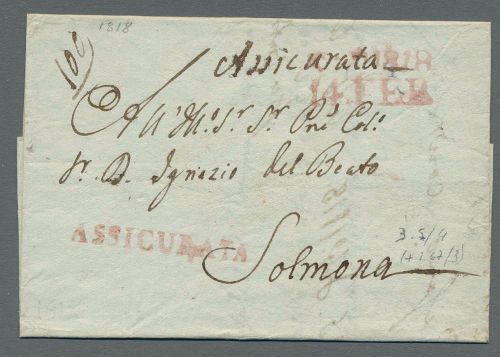 1818
100
Assicurata
1818
14. FEB
All' Ill.o Sr. Sr. Pne Col.o
Sr. D. Ignazio del Beato
ASSICURATA
Solmona
3. S/4